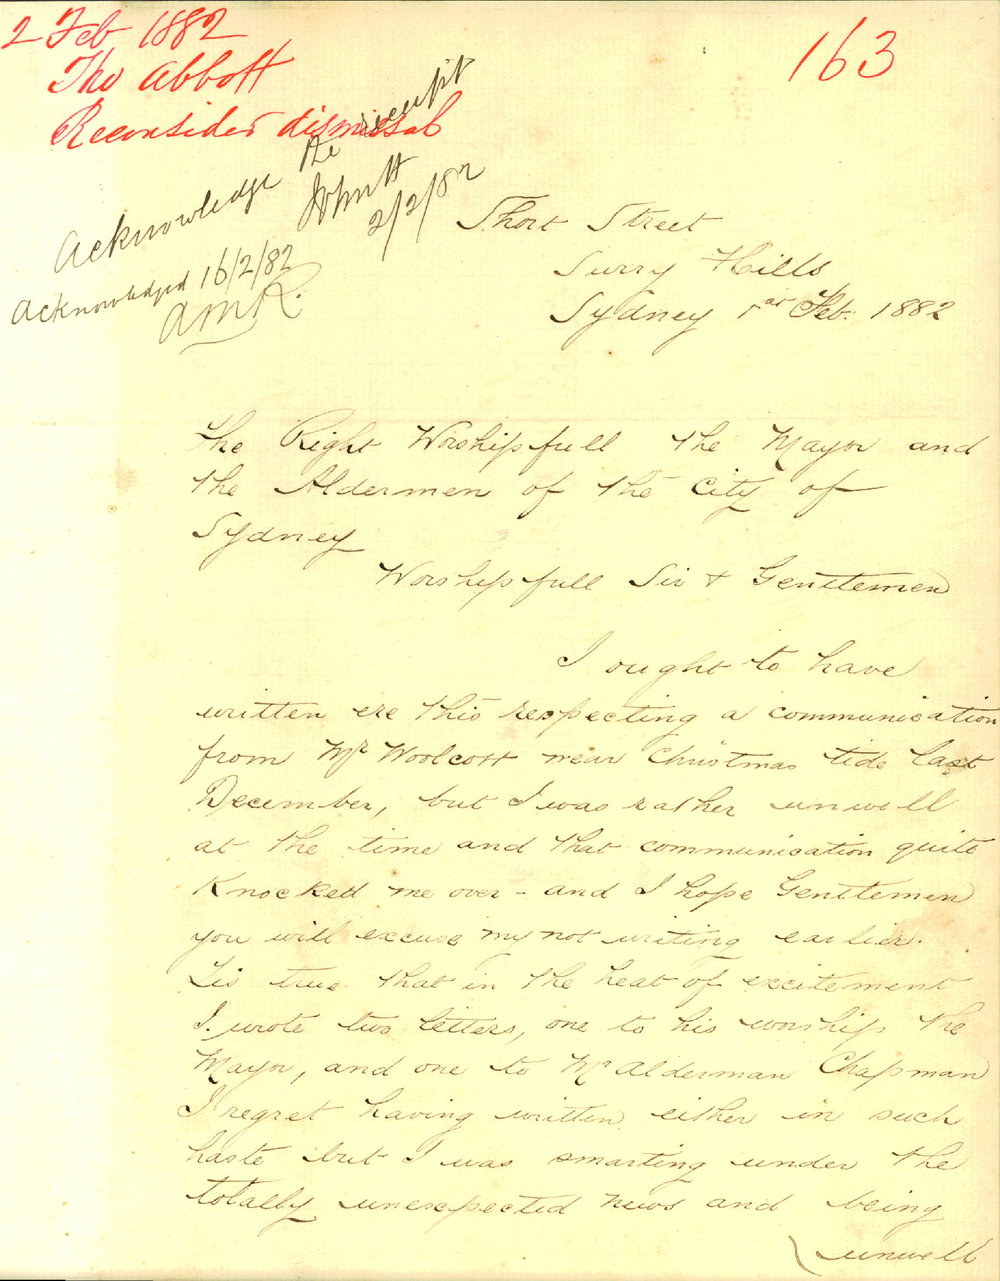 2 Feb 1882
Tho Abbott
Reconsider dismissal
163
Acknowledge the receipt
2/2/82
Acknowledged 16/2/82
AMR.
Short Street
Surry Hills
Sydney 1st Feb. 1882
The Right Worshipfull the Mayor and
the Aldermen of the City of
Sydney
Worshipfull Sir + Gentlemen
I ought to have
written ere this respecting a communication
from Mr Woolcott near Christmas tide last
December, but I was rather unwell
at the time and that communication quite
Knocked me over - and I hope Gentlemen
you will excuse my not writing earlier.
Tis true that in the heat of excitement
I wrote two letters, one to his worship the
Mayor, and one to Mr Alderman Chapman
I regret having written either in such
haste but I was smarting under the
totally unexpected news and being
unwell